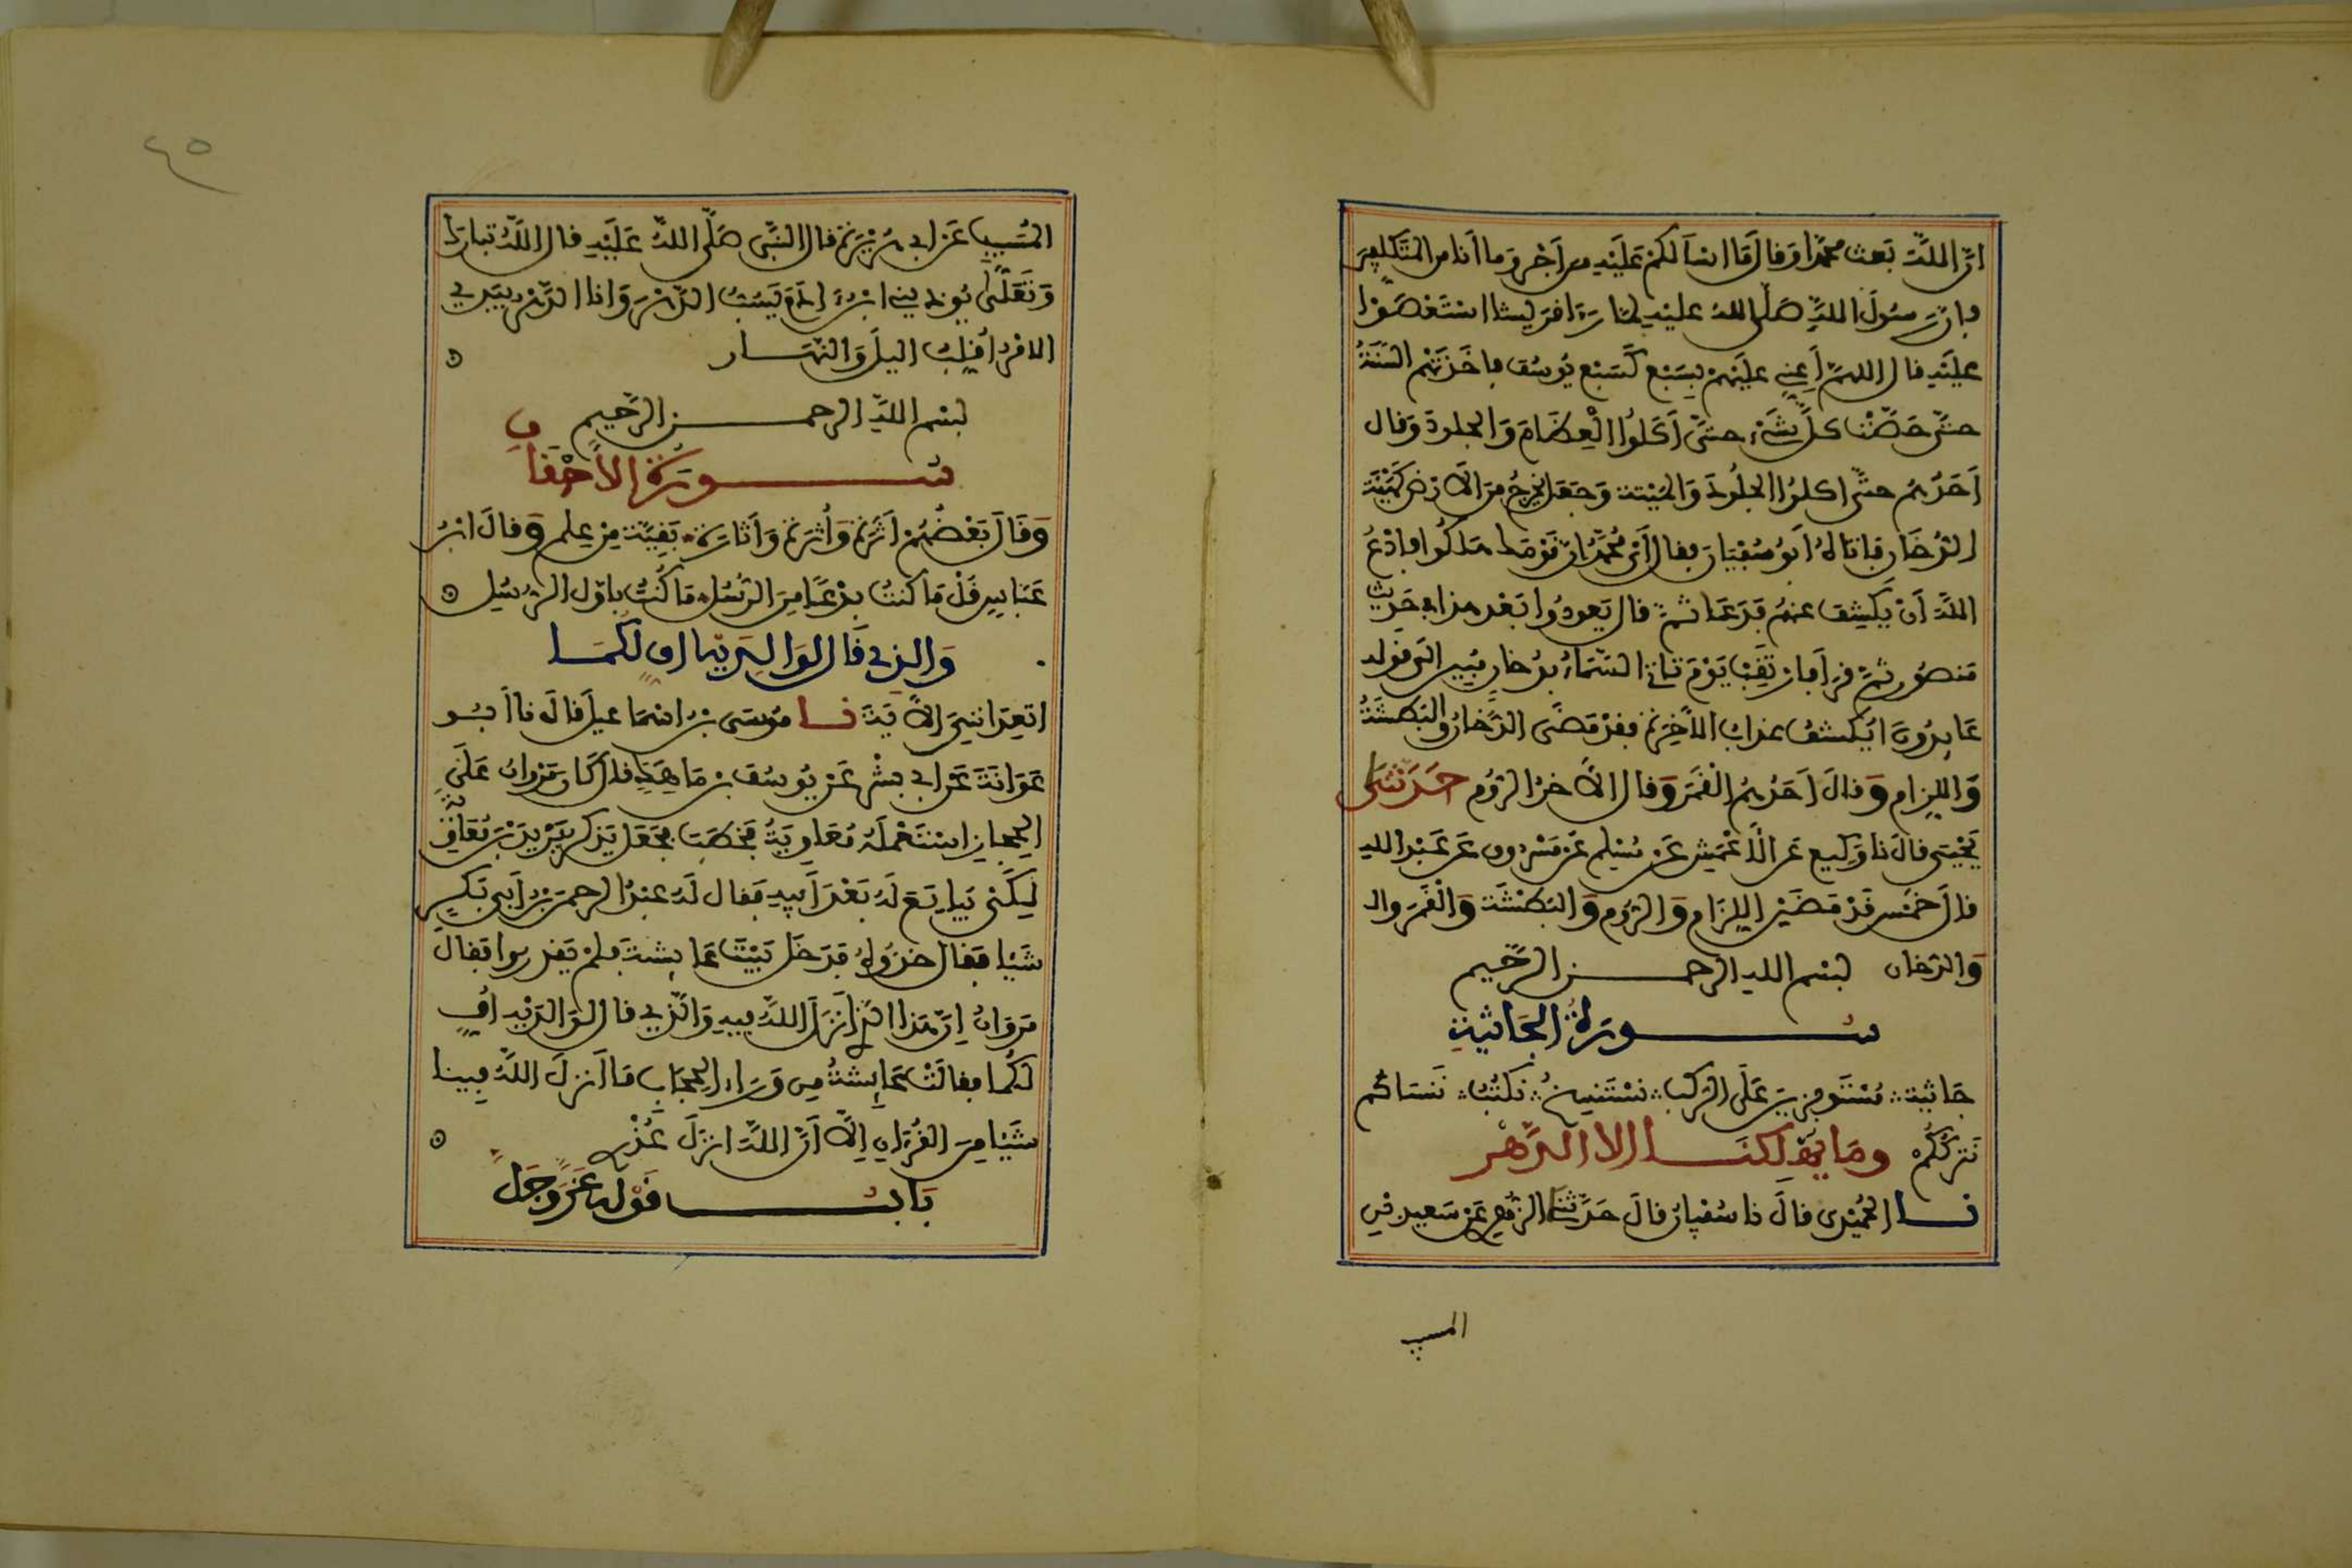 ان الله بعث محمدا وقال قل ما اسألكم عليه من اجر وما انا من المتكلفين
فان رسول الله صلى الله عليه لما رءا قريشا استعصوا
عليه قال اللهم اعني عليهم بسبع كسبع يوسف فاخذتهم السنة
حتى حصت كل شيء حتى اكلوا العظام والجلود وقال
احدهم حتى اكلوا الجلود والميتة وجعل يخرج من الارض كهيئة
الدخان فاتاه ابو سفيان فقال أي محمد ان قومك هلكوا فادع
الله أن يكشف عنهم فدعا ثم قال يعودوا بعد هذا في حديث
منصور ثم قرأ فارتقب يوم تاتي السماء بدخان مبين الى قوله
عايدون ايكشف عذاب الآخرة فقد مضى الدخان والبطشة
واللزام وقال احدهم القمر وقال الآخر الروم حدثني
يحيى قال نا وكيع عن الاعمش عن مسلم عن مسروق عن عبد الله
قال خمس قد مضين اللزام والروم والبطشة والقمر وال
والدخان بسم الله الرحمن الرحيم
سورة الجاثية
جاثية مستوفزين على الركب نستنسخ نكتب ننساكم
نترككم وما يهلكنا الا الدهر
نا الحميدي قال نا سفيان قال حدثنا الزهري عن سعيد بن
المسيب
٤٥
المسيب عن ابي هريرة قال النبي صلى الله عليه قال الله تبارك
وتعلى يوذيني ابن ءادم يسب الدهر وانا الدهر بيدي
الامر أقلب اليل والنهار
بسم الله الرحمن الرحيم
سورة الأحقاف
وقال بعضهم أثرة وأثرة وأثارة بقية من علم وقال ابن
عباس قل ما كنت بدعا من الرسل ما كنت باول الرسل
والذي قال لوالديه اف لكما
اتعدانني الآية نا موسى بن اسماعيل قال نا أبو
عوانة عن ابي بشر عن يوسف بن ماهك قال كان مروان على
الحجاز استعمله معاوية فخطب فجعل يذكر يزيد بن معاوية
لكي يبايع له بعد أبيه فقال له عبد الرحمن بن أبي بكر
شيا فقال خذوه فدخل بيت عايشة فلم يقدروا فقال
مروان إن هذا الذي أنزل الله فيه والذي قال لوالديه أف
لكما فقالت عايشة من وراء الحجاب ما أنزل الله فينا
شيا من القرءان إلا أن الله انزل عذري
باب قوله عز وجل